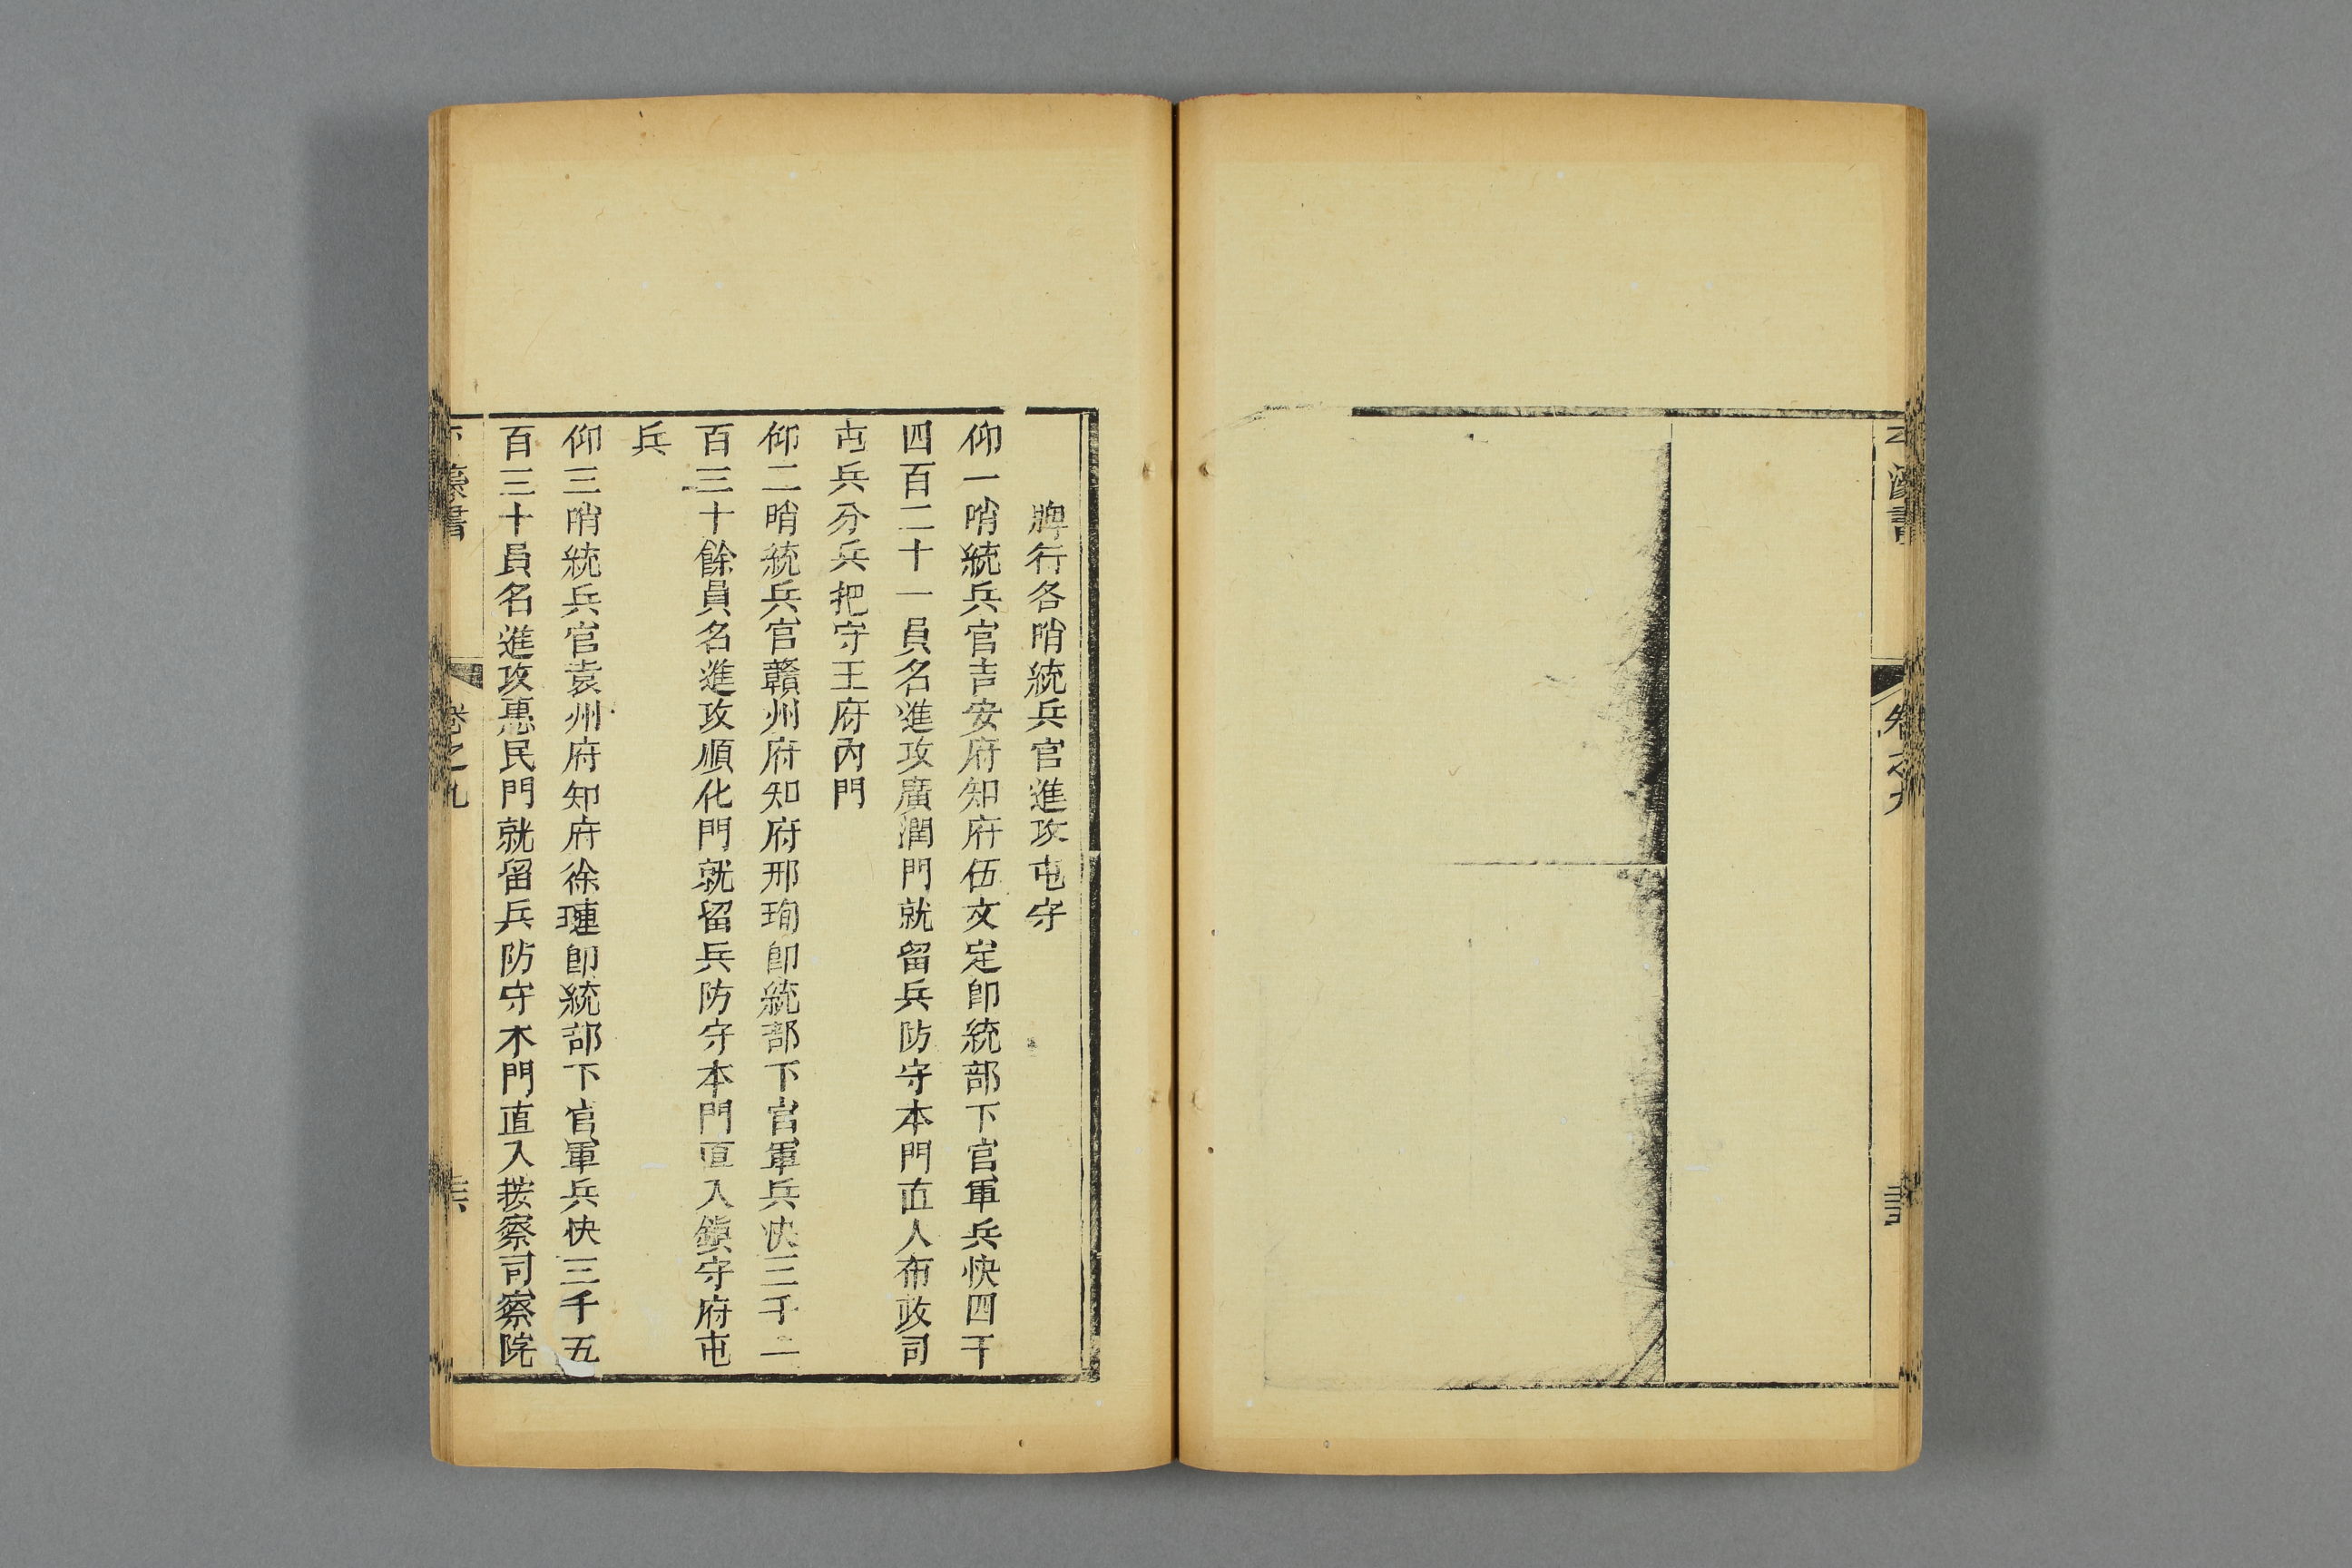 平濠書
卷之九
牌行各哨統兵官進攻屯守
仰一哨統兵官吉安府知府伍文定卽統部下官軍兵快四千
四百二十一員名進攻廣潤門就留兵防守本門直入布政司
屯兵分兵把守王府內門
仰二哨統兵官贛州府知府邢珣卽統部下官軍兵快三千一
百三十餘員名進攻順化門就留兵防守本門直入鎮守府屯
兵
仰三哨統兵官袁州府知府徐璉卽統部下官軍兵快三千五
百三十員名進攻惠民門就留兵防守本門直入按察司察院
濠書
卷之九